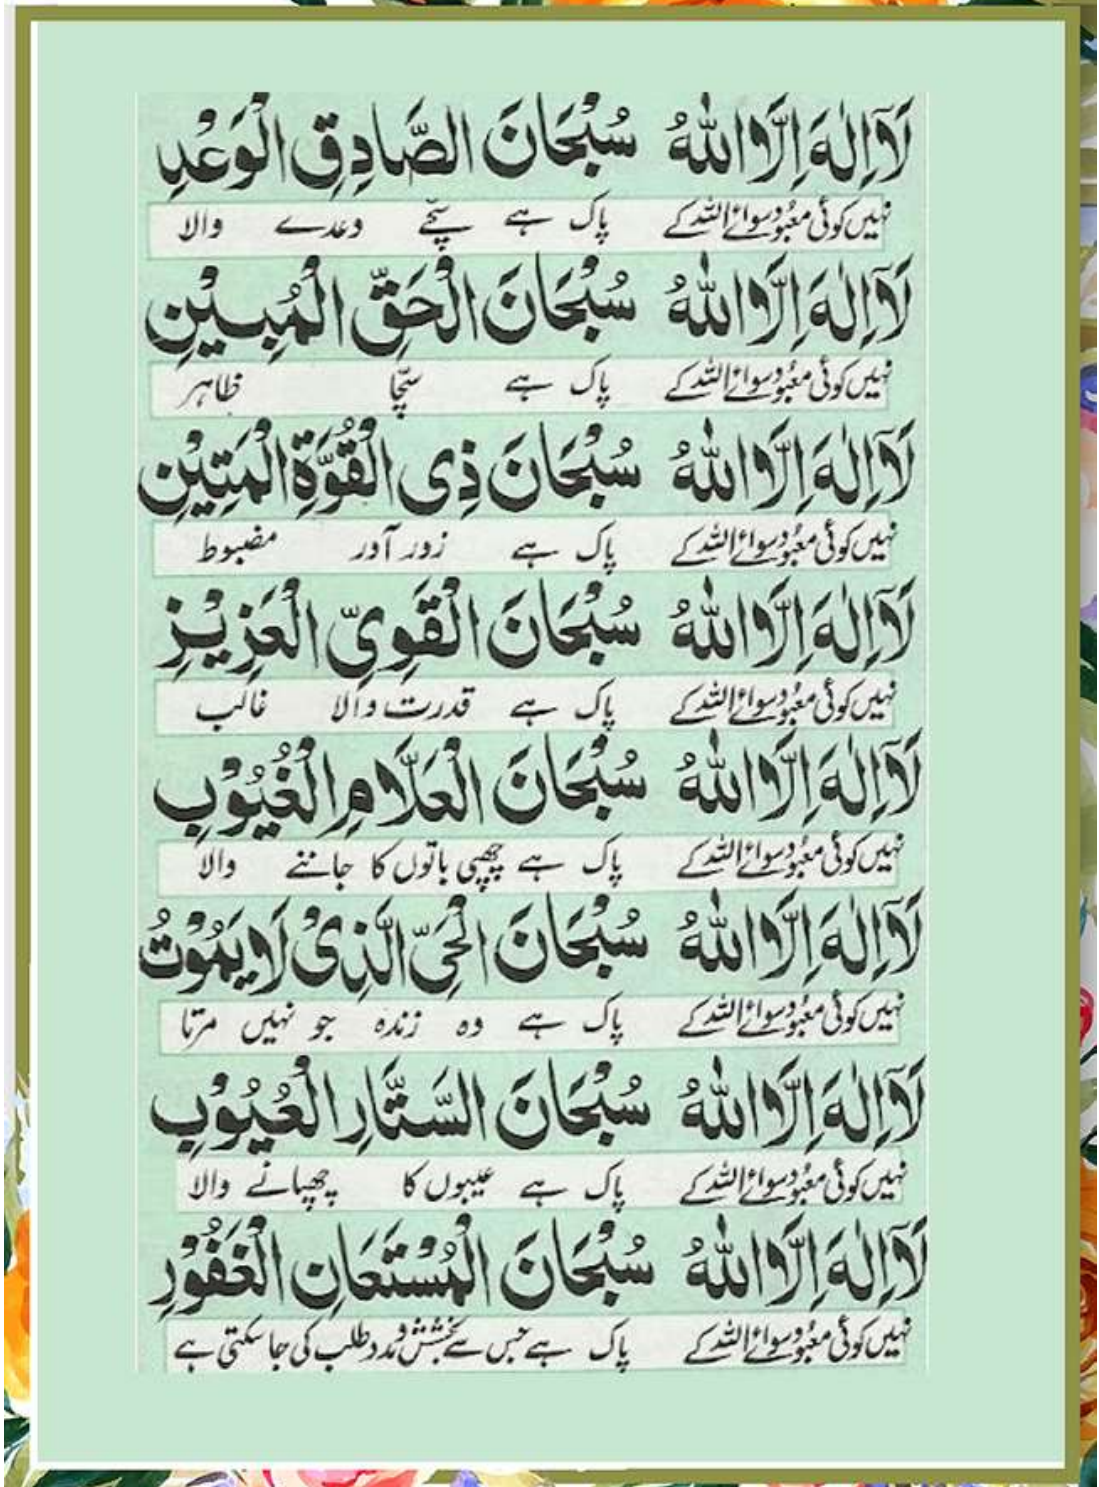 لَاۤاِلٰهَ اِلَّا اللّٰهُ سُبْحَانَ الصَّادِقِ الْوَعْدِ
نہیں کوئی معبود سوائے اللہ کے پاک ہے سچّے وعدے والا
لَاۤاِلٰهَ اِلَّا اللّٰهُ سُبْحَانَ الْحَقِّ الْمُبِيْنِ
نہیں کوئی معبود سوائے اللہ کے پاک ہے سچّا ظاہر
لَاۤاِلٰهَ اِلَّا اللّٰهُ سُبْحَانَ ذِی الْقُوَّةِ الْمَتِيْنِ
نہیں کوئی معبود سوائے اللہ کے پاک ہے زور آور مضبوط
لَاۤاِلٰهَ اِلَّا اللّٰهُ سُبْحَانَ الْقَوِیِّ الْعَزِيْزِ
نہیں کوئی معبود سوائے اللہ کے پاک ہے قدرت والا غالب
لَاۤاِلٰهَ اِلَّا اللّٰهُ سُبْحَانَ الْعَلَّامِ الْغُيُوْبِ
نہیں کوئی معبود سوائے اللہ کے پاک ہے چھپی باتوں کا جاننے والا
لَاۤاِلٰهَ اِلَّا اللّٰهُ سُبْحَانَ الْحَیِّ الَّذِیْ لَا يَمُوْتُ
نہیں کوئی معبود سوائے اللہ کے پاک ہے وہ زندہ جو نہیں مرتا
لَاۤاِلٰهَ اِلَّا اللّٰهُ سُبْحَانَ السَّتَّارِ الْعُيُوْبِ
نہیں کوئی معبود سوائے اللہ کے پاک ہے عیبوں کا چھپانے والا
لَاۤاِلٰهَ اِلَّا اللّٰهُ سُبْحَانَ الْمُسْتَعَانِ الْغَفُوْرِ
نہیں کوئی معبود سوائے اللہ کے پاک ہے جس سے بخشش و مدد طلب کی جا سکتی ہے